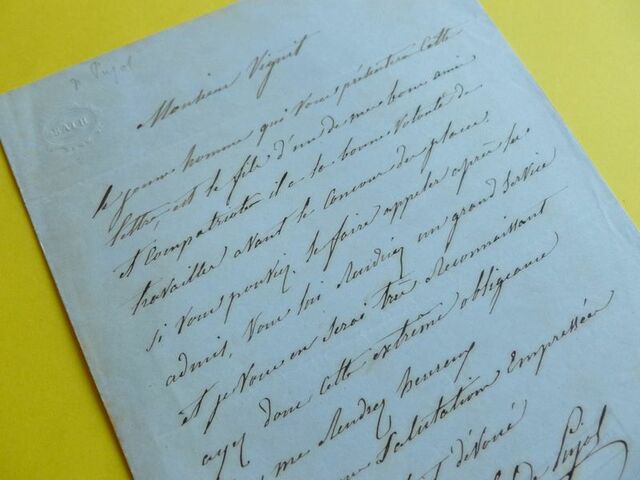 Pujol
BATH
Monsieur Vignit
le jeune homme qui vous présentera cette
lettre, est le fils d'un de mes bons amis
et compatriote il a la bonne volonté de
travailler avant le concour des places
si vous pouviez le faire appeler après les
admis, vous lui rendriez un grand service
et je vous en serai très reconnaissant
ayez donc cette extrême obligeance
me rendrez heureux
Salutation Empressée
dévoué
de Pujol